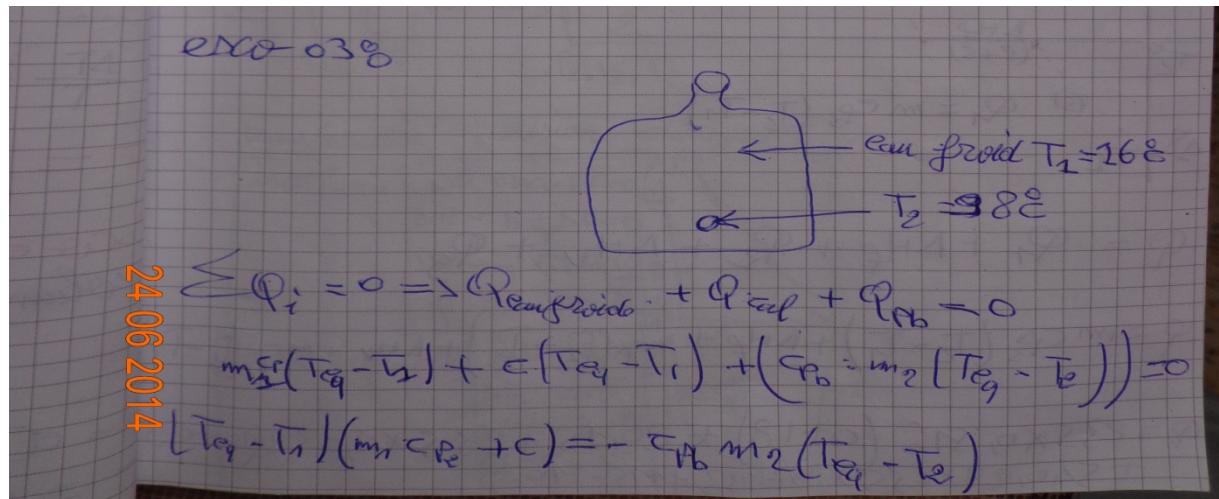 exo 03:
eau froid T₁=16°C
T₂=98°C
ΣQᵢ = 0 => Q eau froide + Q cal + Q Pb = 0
m₁c (Teq - T₁) + c(Teq - T₁) + (c Pb · m₂ (Teq - T₂)) = 0
(Teq - T₁)(m₁ c + c) = - c Pb m₂ (Teq - T₂)
24 06 2014